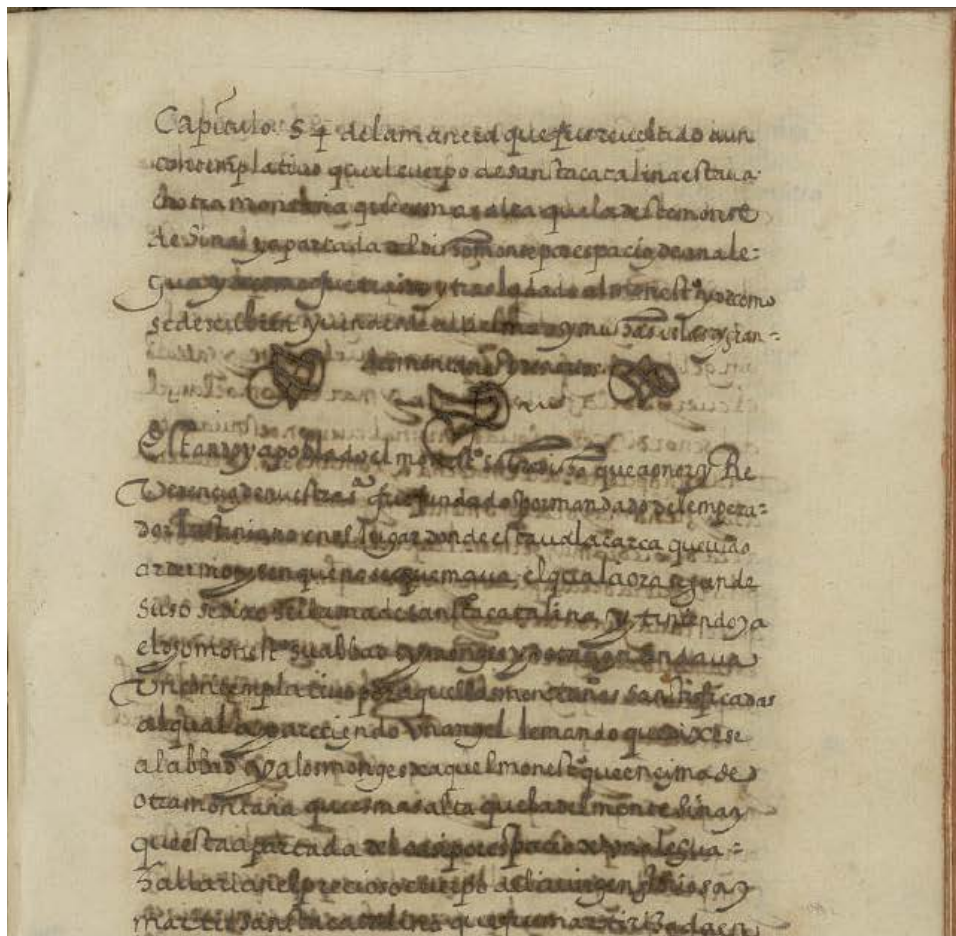 Capitulo 54 de la manera que fue reuelado a un
contemplatiuo que el cuerpo de sancta catalina estaua
en otra montaña que es mas alta que la del monte
de Sinai y apartada del dicho monte por espacio de una le=
gua y de como fue traido y trasladado al monest.º y de como
se descubren yuendo en el
Estando ya poblado el monest.º que a onor y Re
Verencia de nuestra s.ª fue fundado por mandado del empera=
dor Justiniano en el lugar donde estaua la çarca que uido
arder moysen que no se quemaua, el qual aora segun de
suso se dixo se llama de sancta catalina, y tiniendo ya
el monest.º su abbad y monges andaua
Un contemplatiuo por aquellas montañas sanctificadas
al qual apareciendo Un angel le mando que dixese
al abbad y a los monges de aquel monest.º que encima de
otra montaña que es mas alta que la del monte Sinay
que esta apartada por espacio de una legua =
hallarian el precioso cuerpo de la uirgen gloriosa y
martir sancta catalina que fue martirizada en